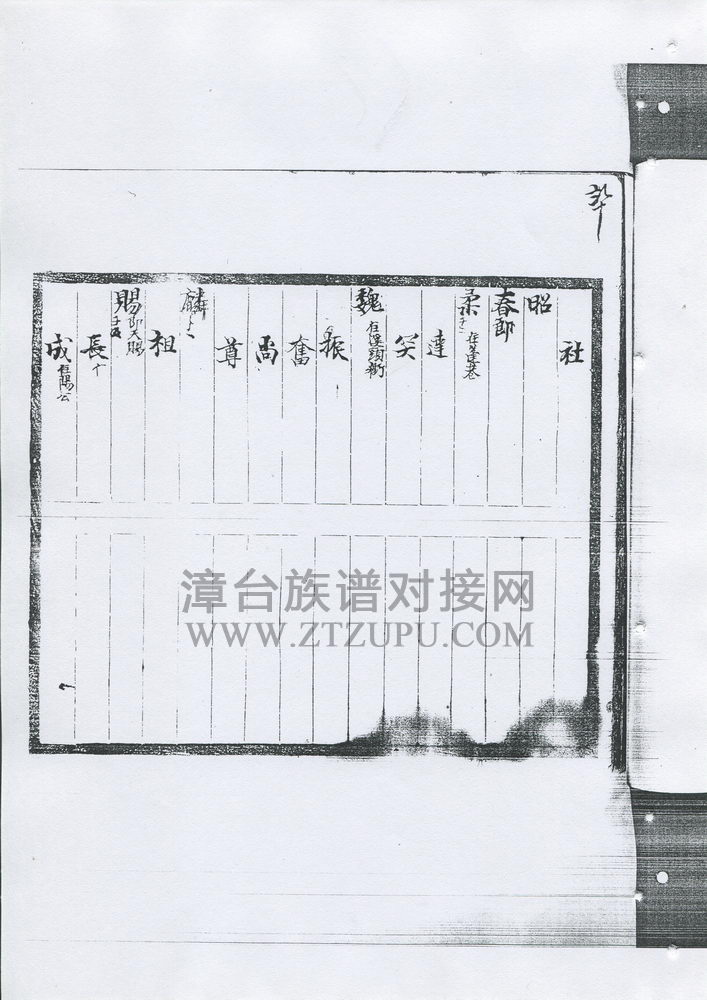 社
昭
春郎
柔 住蓬巷
達
笑
魏 住溪頭街
振
奮
尚
尊
麟
祖
賜 即天賜
長
成 住陽公
漳台族谱对接网
WWW.ZTZUPU.COM